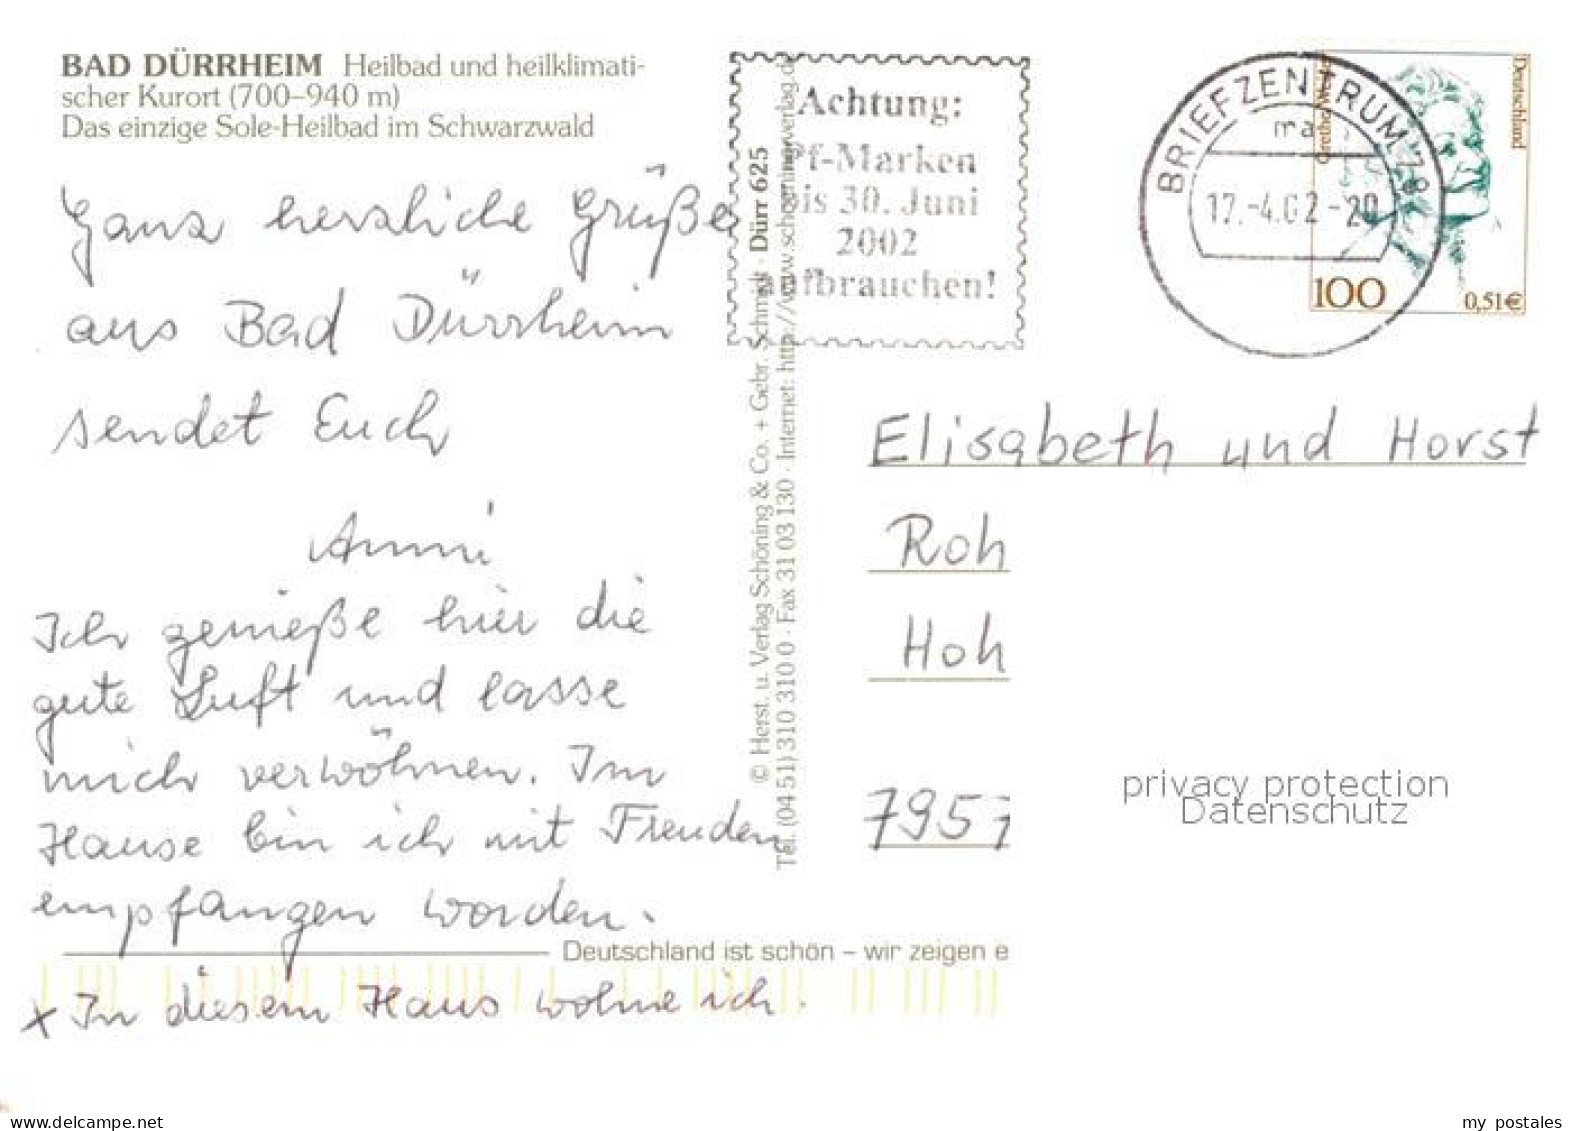 BAD DÜRRHEIM Heilbad und heilklimati-
scher Kurort (700–940 m)
Das einzige Sole-Heilbad im Schwarzwald
Ganz herzliche Grüße
aus Bad Dürrheim
sendet Euch
Anni
Ich genieße hier die
gute Luft und lasse
mich verwöhnen. Im
Hause bin ich mit Freuden
empfangen worden.
x In diesem Haus wohne ich.
© Herst. u. Verlag Schöning & Co. + Gebr. Schmidt · Dürr 625
Tel. (04 51) 310 310 0 · Fax 31 03 130 · Internet: http://www.schoeningverlag.d
Achtung:
Pf-Marken
bis 30. Juni
2002
aufbrauchen!
BRIEFZENTRUM 78
ma
17.-4.02-20
Deutschland
100
0,51€
Elisabeth und Horst
Roh
Hoh
7957
privacy protection
Datenschutz
Deutschland ist schön – wir zeigen e
www.delcampe.net
my_postales